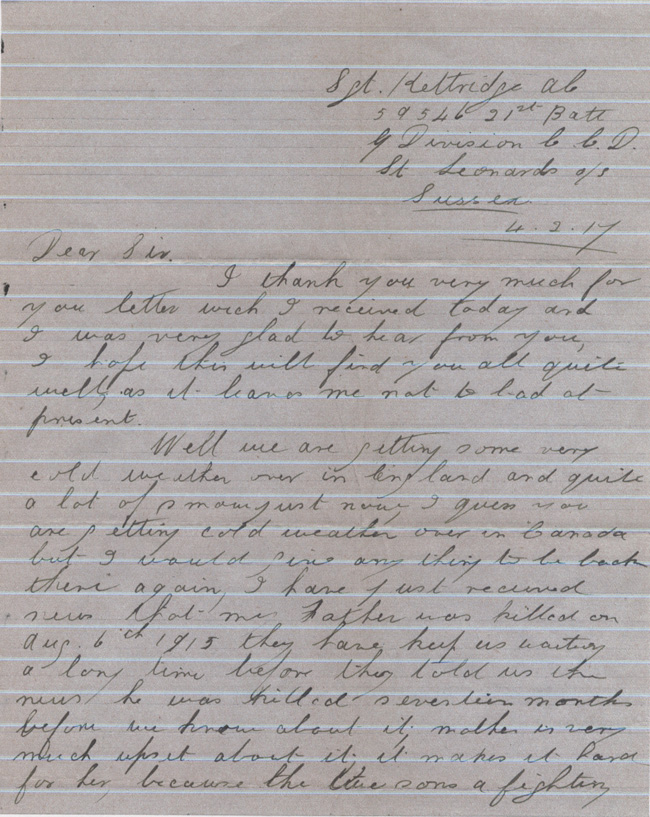 Sgt. Kettridge A C
59546 21st Batt
G Division C. C. D.
St Leonards o/s
Sussex
4.2.17
Dear Sir.
I thank you very much for
you letter wich I received today and
I was very glad to hear from you,
I hope this will find you all quite
well, as it leaves me not to bad at
present.
Well we are getting some very
cold weather over in England and quite
a lot of snow just now, I guess you
are getting cold weather over in Canada
but I would give any thing to be back
there again, I have just received
news that my Father was killed on
Aug. 6th 1915 they have kept us waiting
a long time before they told us the
news he was killed seventein months
before we know about it. mother is very
much upset about it. it makes it hard
for her, because the sons a fighting